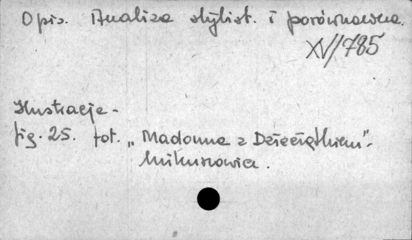 Opis. Analiza stylist. i porównawcza.
XV/785
Ilustracje -
fig. 25. fot. „Madonna z Dzieciątkiem"-
Mikuszowice.